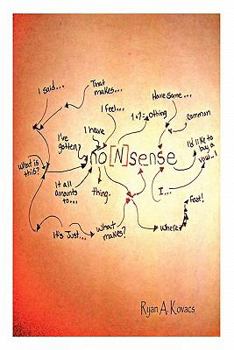 That
makes...
I said...
Have some...
I feel...
1x?=0thing
common
I've
gotten?
I have
I'd like to
buy a
vowel..!
no[N]sense
What is
this?
It all
amounts
to...
thing.
I...
Feat!
It's Just...
What
makes?
Where?
Ryan A. Kovacs